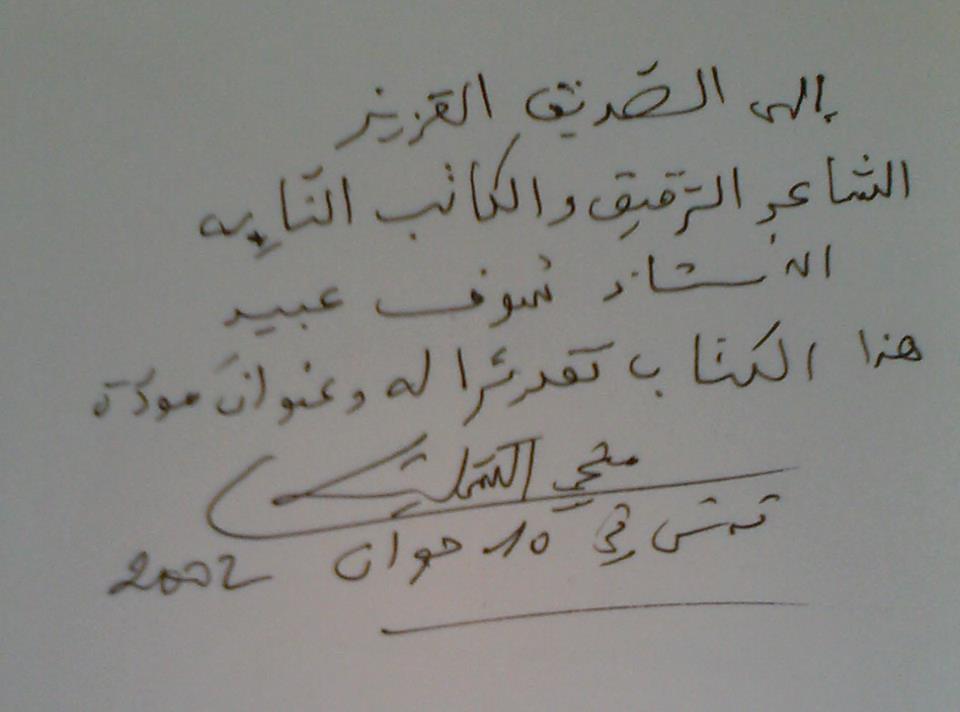 إلى الصّديق العزيز
الشاعر الرّقيق والكاتب النّابه
الأستاذ سوف عبيد
هذا الكتاب تقديرًا له وعنوانَ مودّة
منجي الشملي
تونس في 10 جوان 2002